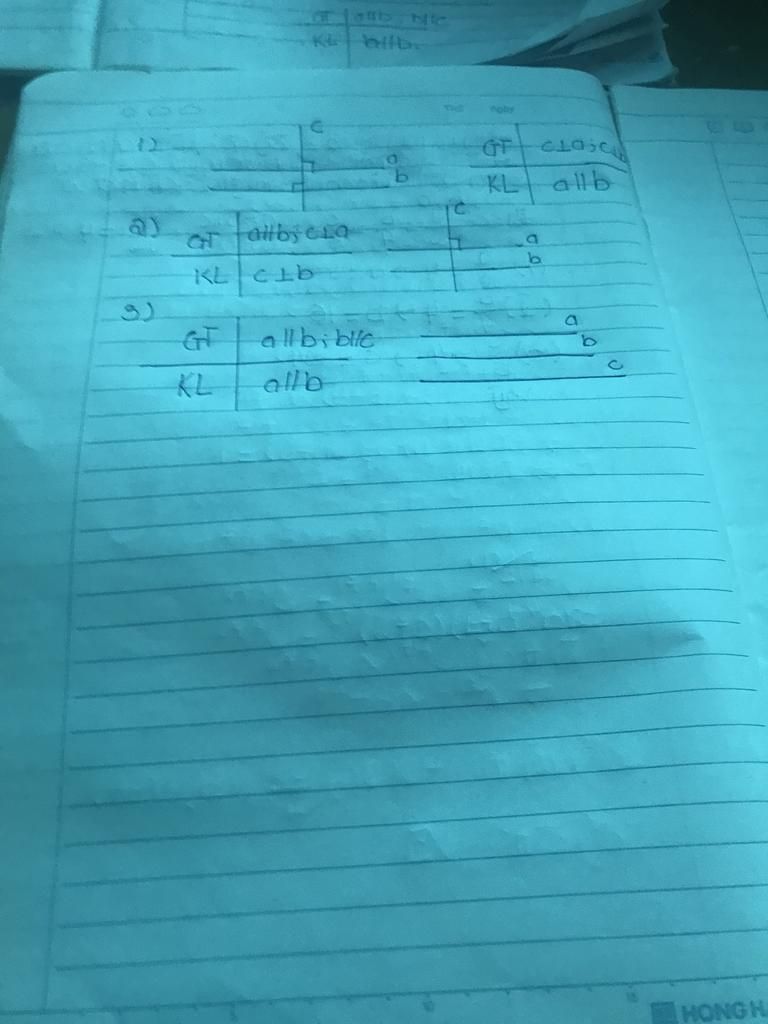 GT a//b; b//c
KL b//b.
1) c
a
b
GT c⊥a; c⊥
KL a//b
2) GT a//b; c⊥a
KL c⊥b
c
a
b
3)
GT a//b; b//c
KL a//b
a
b
c
HONG H